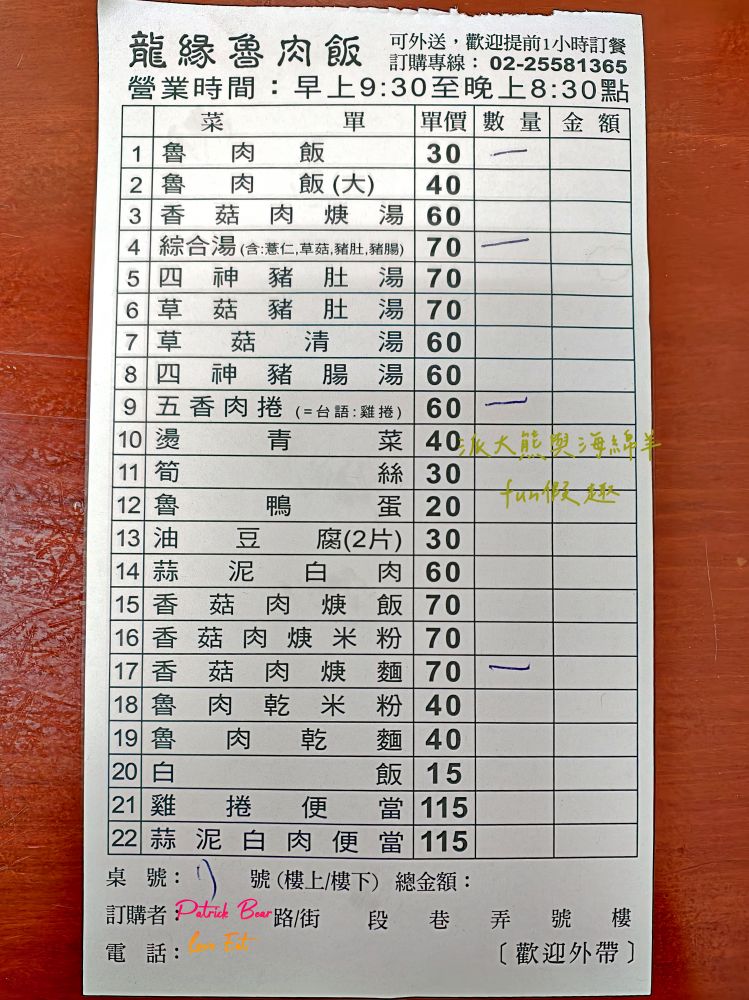 龍緣魯肉飯 可外送，歡迎提前1小時訂餐
訂購專線：02-25581365
營業時間：早上9:30至晚上8:30點
菜單 單價 數量 金額
1 魯肉飯 30 一
2 魯肉飯(大) 40
3 香菇肉焿湯 60
4 綜合湯(含:薏仁,草菇,豬肚,豬腸) 70 一
5 四神豬肚湯 70
6 草菇豬肚湯 70
7 草菇清湯 60
8 四神豬腸湯 60
9 五香肉捲(=台語:雞捲) 60 一
10 燙青菜 40
派大熊與海綿羊
11 筍絲 30
fun假趣
12 魯鴨蛋 20
13 油豆腐(2片) 30
14 蒜泥白肉 60
15 香菇肉焿飯 70
16 香菇肉焿米粉 70
17 香菇肉焿麵 70 一
18 魯肉乾米粉 40
19 魯肉乾麵 40
20 白飯 15
21 雞捲便當 115
22 蒜泥白肉便當 115
桌號： 號(樓上/樓下) 總金額：
訂購者：Patrick Bear 路/街 段 巷 弄 號 樓
電話：Love Eat〔歡迎外帶〕